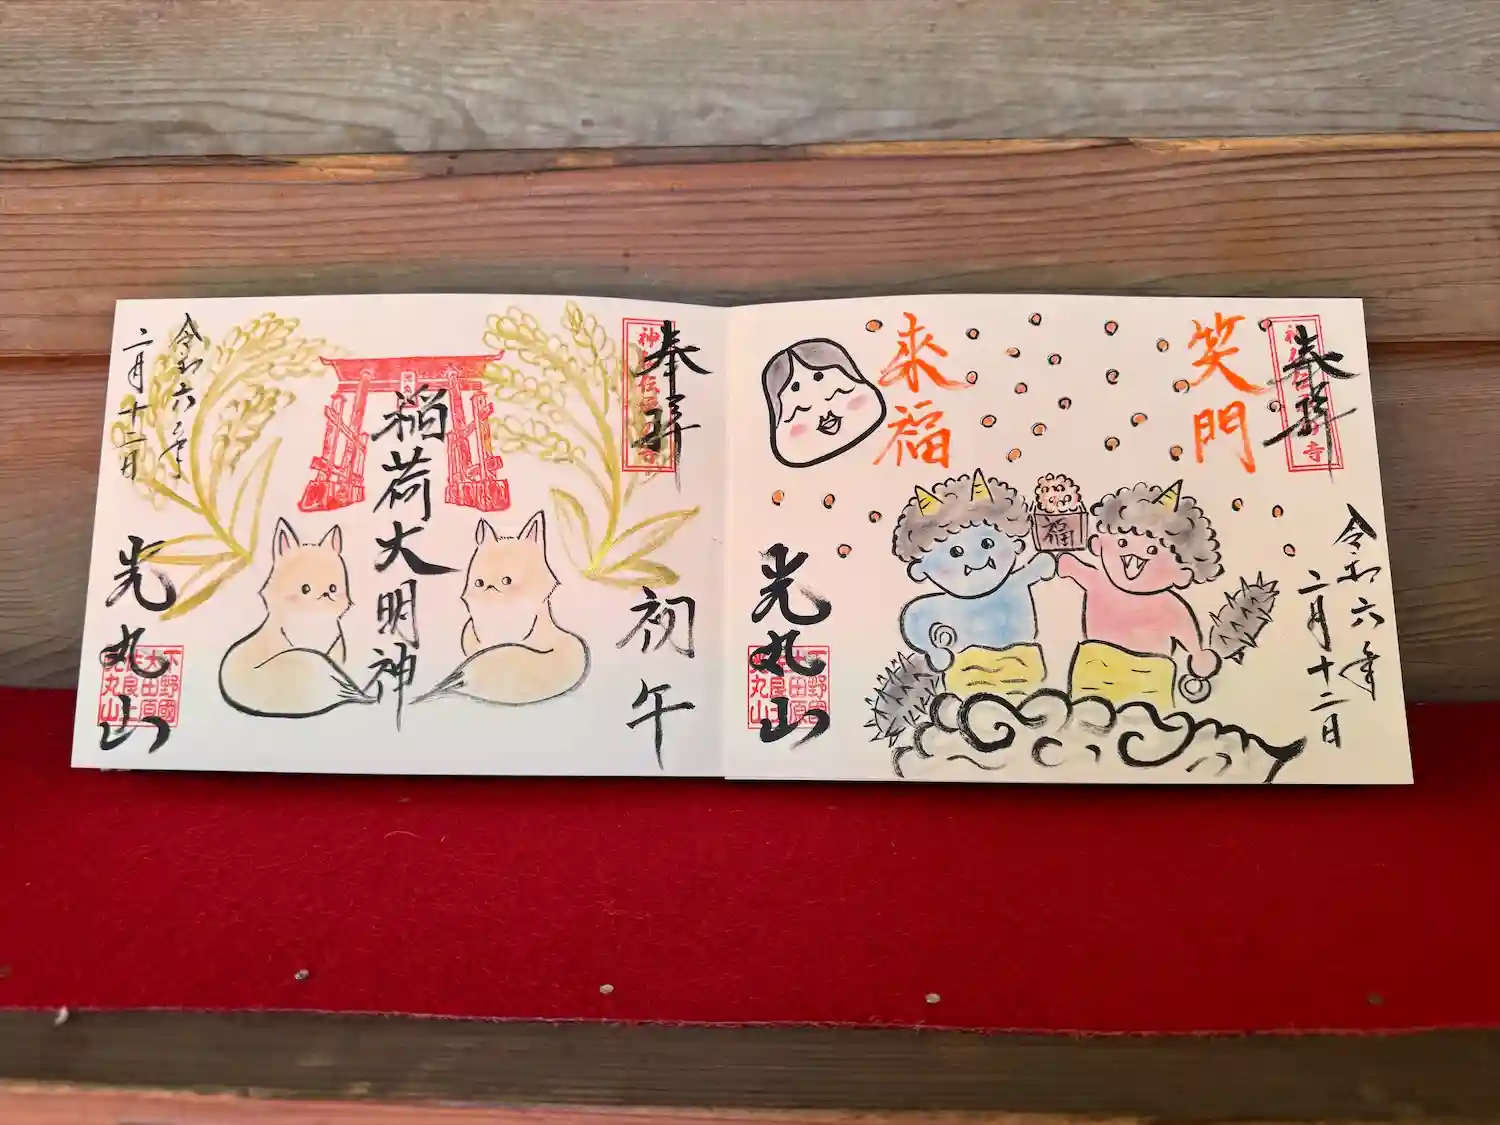 奉拝
笑門
来福
福
令和六年
二月十二日
光丸山
下野國
大田原
光丸山
奉拝
初午
稲荷大明神
令和六年
二月十二日
光丸山
下野國
大田原
佐良土
光丸山